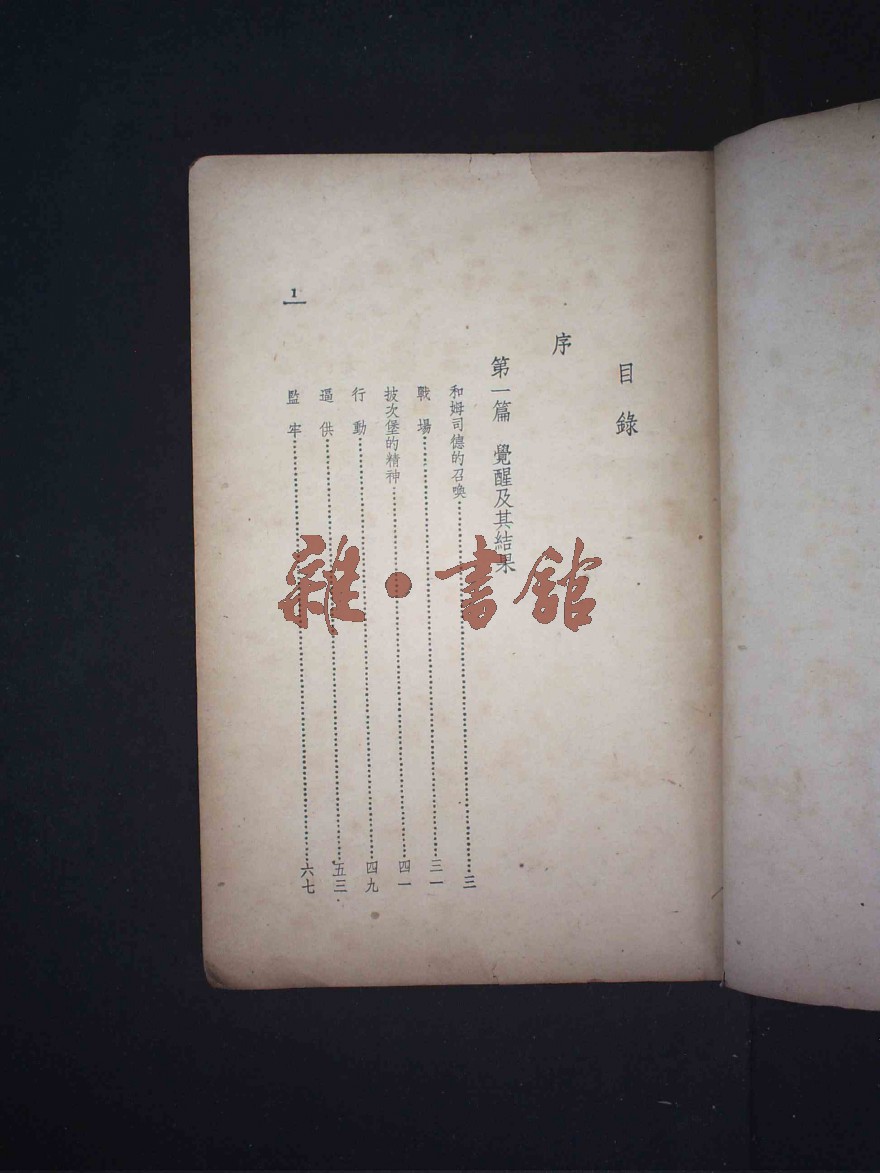 目錄
序
第一篇 覺醒及其結果
和姆司德的召喚……三
戰場……三一
披次堡的精神……四一
行動……四九
逼供……五三
監牢……六七
1
雜·書館